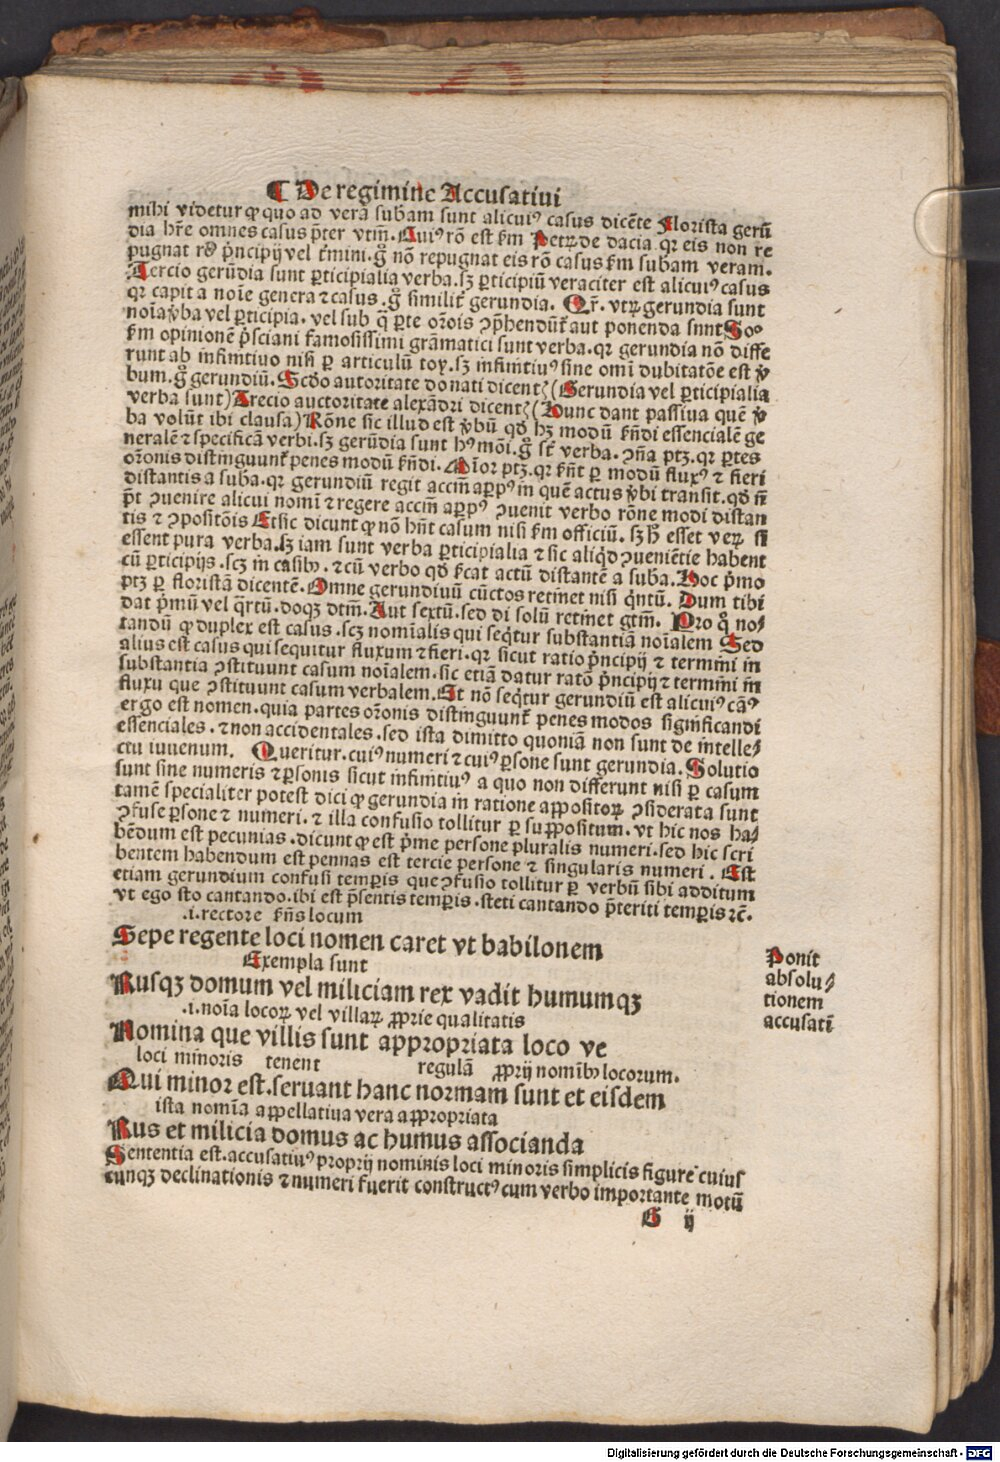 ¶ De regimine Accusatiui
mihi videtur ꝙ quo ad verā subam sunt alicuiꝰ casus dicēte Florista gerū
dia hr̄e omnes casus p̄ter vtm̄. Cuiꝰ rō est ẜm Petrꝝ de dacia. qr eis non re
pugnat p̄ncipij vel t̄mini. gͦ nō repugnat eis rō casus ẜm subam veram.
Tercio gerūdia sunt ꝑticipialia verba. sꝫ ꝑticipiū veraciter est alicuiꝰ casus
qr capit a noīe genera ⁊ casus. gͦ similit̄ gerundia. Qr̄. vtꝝ gerundia sunt
noīa v̄ba vel ꝑticipia. vel sub q̄ ꝑte or̄ois ꝯp̄hendūt̄ aut ponenda snnt Soͦ
ẜm opinionē p̄sciani famosissimi grāmatici sunt verba. qr gerundia nō diffe
runt ab infinitiuo nisi ꝑ articulū toy. sꝫ infinitiuꝰ sine omī dubitatōe est v̄
bum. gͦ gerundiū. Scd̄o autoritate donati dicentꝭ (Gerundia vel ꝑticipialia
verba sunt) Trecio auctoritate alexādri dicentꝭ (Hunc dant passiua quē v̄
ba volūt ibi clausa) Rōne sic illud est v̄bū qd̄ hꝫ modū ẜn̄di essencialē ge
neralē ⁊ specificā verbi. sꝫ gerūdia sunt hꝰ mōi. gͦ st̄ verba. ꝯn̄a ptꝫ. qr ꝑtes
or̄onis distinguunt̄ penes modū ẜn̄di. Maior ptꝫ. qr ẜn̄t ꝑ modū fluxꝰ ⁊ fieri
distantis a suba. qr gerundiū regit accm̄ a ꝑpꝰ in quē actus v̄bi transit. qd̄ n̄
p̄t ꝯuenire alicui nomī ⁊ regere accm̄ a ꝑpꝰ ꝯuenit verbo rōne modi distan
tis ⁊ ꝯpositōis Et sic dicunt ꝙ nō hn̄t casum nisi ẜm officiū. sꝫ h̄ esset veꝝ si
essent pura verba. sꝫ iam sunt verba ꝑticipialia ⁊ sic aliqd̄ ꝯueniētie habent
cū ꝑticipijs. scꝫ in casibꝫ. ⁊ cū verbo qd̄ ẜcat actū distantē a suba. Hoc p̄mo
ptꝫ ꝑ floristā dicentē. Omne gerundiuū cūctos retinet nisi q̄ntū. Dum tibi
dat p̄mū vel q̄rtū. doqꝫ dtm̄. Aut sextū. sed di solū retinet gtm̄. Pro q̄ no⸗
tandū ꝙ duplex est casus. scꝫ nomīalis qui seq̄tur substantiā noīalem Sed
alius est casus qui sequitur fluxum ⁊ fieri. qr sicut ratio p̄ncipij ⁊ termini in
substantia ꝯstituunt casum noīalem. sic etiā datur ratō p̄ncipij ⁊ termini in
fluxu que ꝯstituunt casum verbalem. Et nō seq̄tur gerundiū est alicuiꝰ cāꝰ
ergo est nomen. quia partes or̄onis distinguunt̄ penes modos significandi
essenciales. ⁊ non accidentales. sed ista dimitto quoniā non sunt de intelle⸗
ctu iuuenum. Queritur. cuiꝰ numeri ⁊ cuiꝰ ꝑsone sunt gerundia. Solutio
sunt sine numeris ⁊ ꝑsonis sicut infinitiuꝰ a quo non differunt nisi ꝑ casum
tamē specialiter potest dici ꝙ gerundia in ratione appositoꝝ ꝯsiderata sunt
ꝯfuse ꝑsone ⁊ numeri. ⁊ illa confusio tollitur ꝑ suppositum. vt hic nos ha⸗
bēdum est pecunias. dicunt ꝙ est p̄me persone pluralis numeri. sed hic scri
bentem habendum est pennas est tercie persone ⁊ singularis numeri. Est
etiam gerundium confusi tempis que ꝯfusio tollitur ꝑ verbū sibi additum
vt ego sto cantando. ibi est p̄sentis tempis. steti cantando p̄teriti tempis ⁊c̄.
.i. rectore ẜn̄s locum
Sepe regente loci nomen caret vt babilonem
Exempla sunt
Rusqꝫ domum vel miliciam rex vadit humumqꝫ
.i. noīa locoꝝ vel villaꝝ ꝓprie qualitatis
Nomina que villis sunt appropriata loco ve
loci minoris tenent regulā ꝓprij nomībꝫ locorum.
Qui minor est. seruant hanc normam sunt et eisdem
ista nomīa appellatiua vera appropriata
Rus et milicia domus ac humus associanda
Sententia est. accusatiuꝰ proprij nominis loci minoris simplicis figure cuius
cunqꝫ declinationis ⁊ numeri fuerit constructꝰ cum verbo importante motū
G ij
Ponit
absolu⸗
tionem
accusati
Digitalisierung gefördert durch die Deutsche Forschungsgemeinschaft - DFG